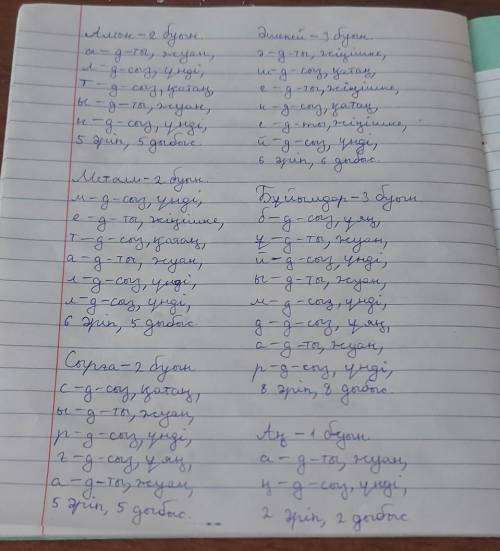 Алтын – 2 буын.
а – д – ты, жуан,
л – д – сыз, үнді,
т – д – сыз, қатаң,
ы – д – ты, жуан,
н – д – сыз, үнді,
5 әріп, 5 дыбыс.
Металл – 2 буын.
м – д – сыз, үнді,
е – д – ты, жіңішке,
т – д – сыз, қатаң,
а – д – ты, жуан,
л – д – сыз, үнді,
л – д – сыз, үнді
6 әріп, 5 дыбыс.
Сырға – 2 буын
с – д – сыз, қатаң,
ы – д – ты, жуан,
р – д – сыз, үнді,
ғ – д – сыз, ұяң,
а – д – ты, жуан,
5 әріп, 5 дыбыс.
Әшекей – 3 буын
ә – д – ты, жіңішке,
ш – д – сыз, қатаң,
е – д – ты, жіңішке,
к – д – сыз, қатаң,
е – д – ты, жіңішке,
й – д – сыз, үнді,
6 әріп, 6 дыбыс.
Бұйымдар – 3 буын
б – д – сыз, ұяң,
ұ – д – ты, жуан,
й – д – сыз, үнді,
ы – д – ты, жуан,
м – д – сыз, үнді,
д – д – сыз, ұяң,
а – д – ты, жуан,
р – д – сыз, үнді,
8 әріп, 8 дыбыс.
Аң – 1 буын.
а – д – ты, жуан,
ң – д – сыз, үнді,
2 әріп, 2 дыбыс